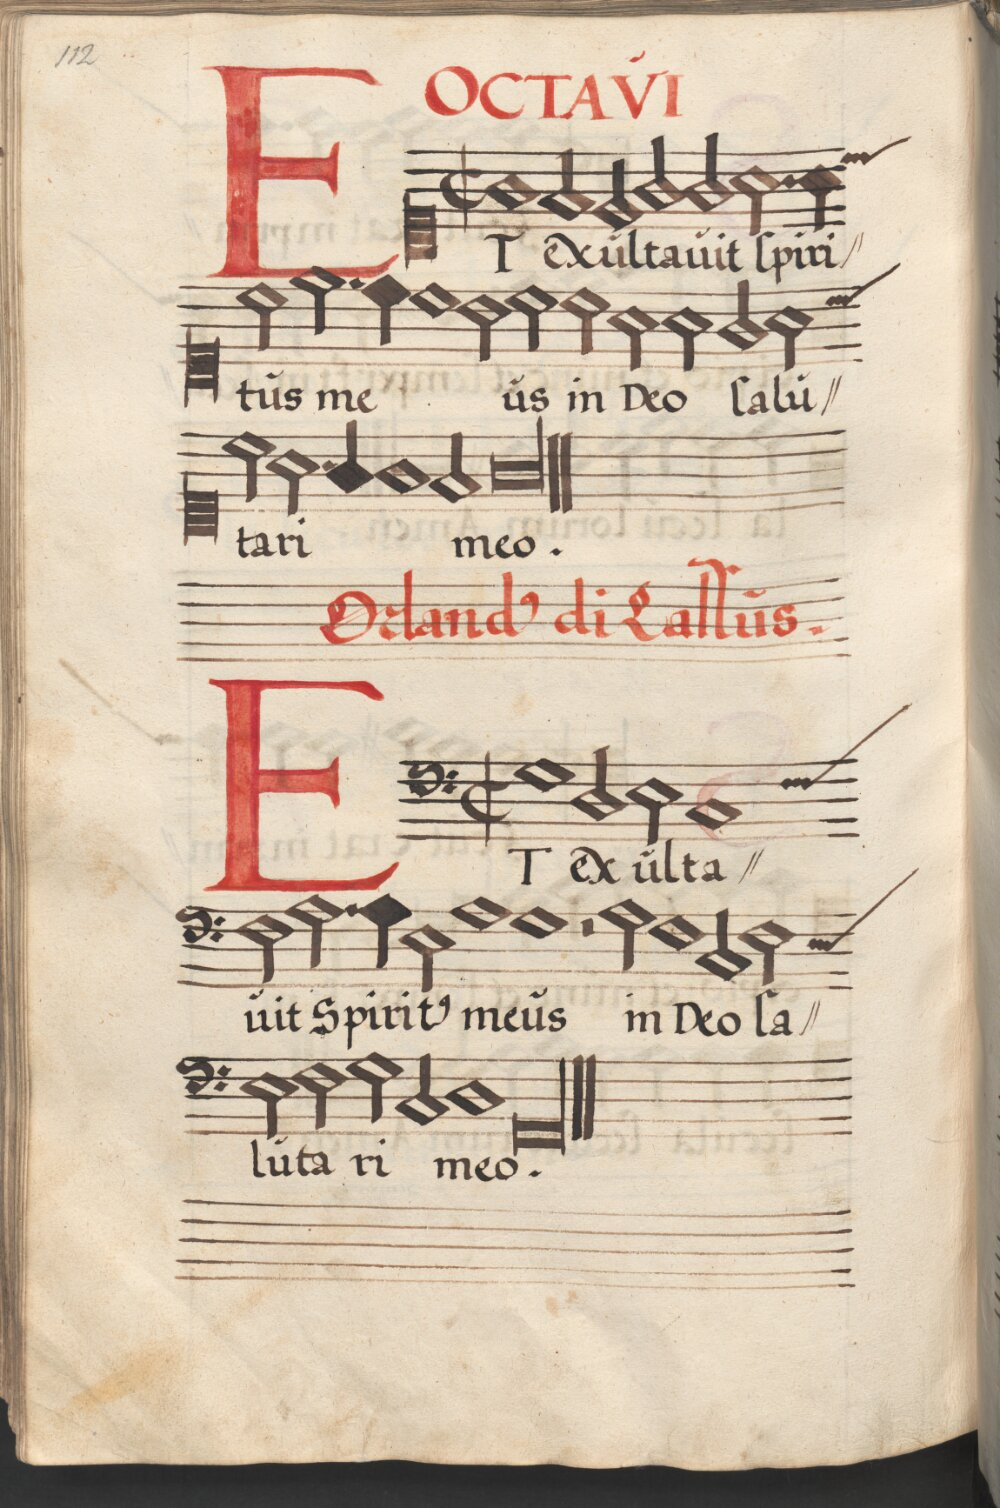 112
OCTAVI
ET exultavit spiri//
tus me us in Deo salu//
tari meo.
Orland⁹ di Lassus.
ET exulta//
uit Spirit⁹ meus in Deo sa//
luta ri meo.